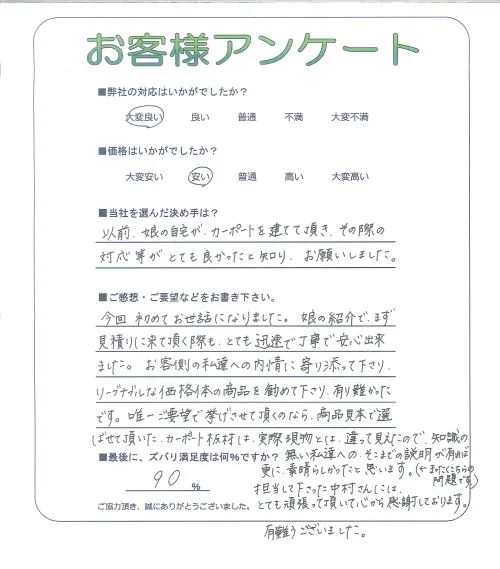 お客様アンケート
■弊社の対応はいかがでしたか？
大変良い 良い 普通 不満 大変不満
■価格はいかがでしたか？
大変安い 安い 普通 高い 大変高い
■当社を選んだ決め手は？
以前、娘の自宅が、カーポートを建てて頂き、その際の
対応等がとても良かったと知り、お願いしました。
■ご感想・ご要望などをお書き下さい。
今回初めてお世話になりました。娘の紹介で、まず
見積りに来て頂く際も、とても迅速で丁寧で安心出来
ました。お客側の私達への内情に寄り添って下さり、
リーズナブルな価格体の商品を勧めて下さり、有り難かった
です。唯一ご要望で挙げさせて頂くのなら、商品見本で選
ばせて頂いた、カーポート板材は、実際現物とは、違って見えたので、知識の
無い私達への、そこまでの説明が有れば
更に、素晴らしかったと思います。(でもまったくこちらの
問題です)
■最後に、ズバリ満足度は何%ですか？
90 %
担当して下さった中村さんには、
とても頑張って頂いて心から感謝しております。
有難うございました。
ご協力頂き、誠にありがとうございました。